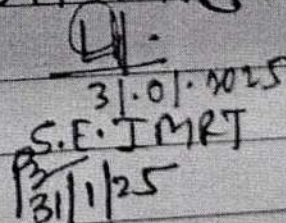 31.01.2025
S.E. IMRT
31/1/25